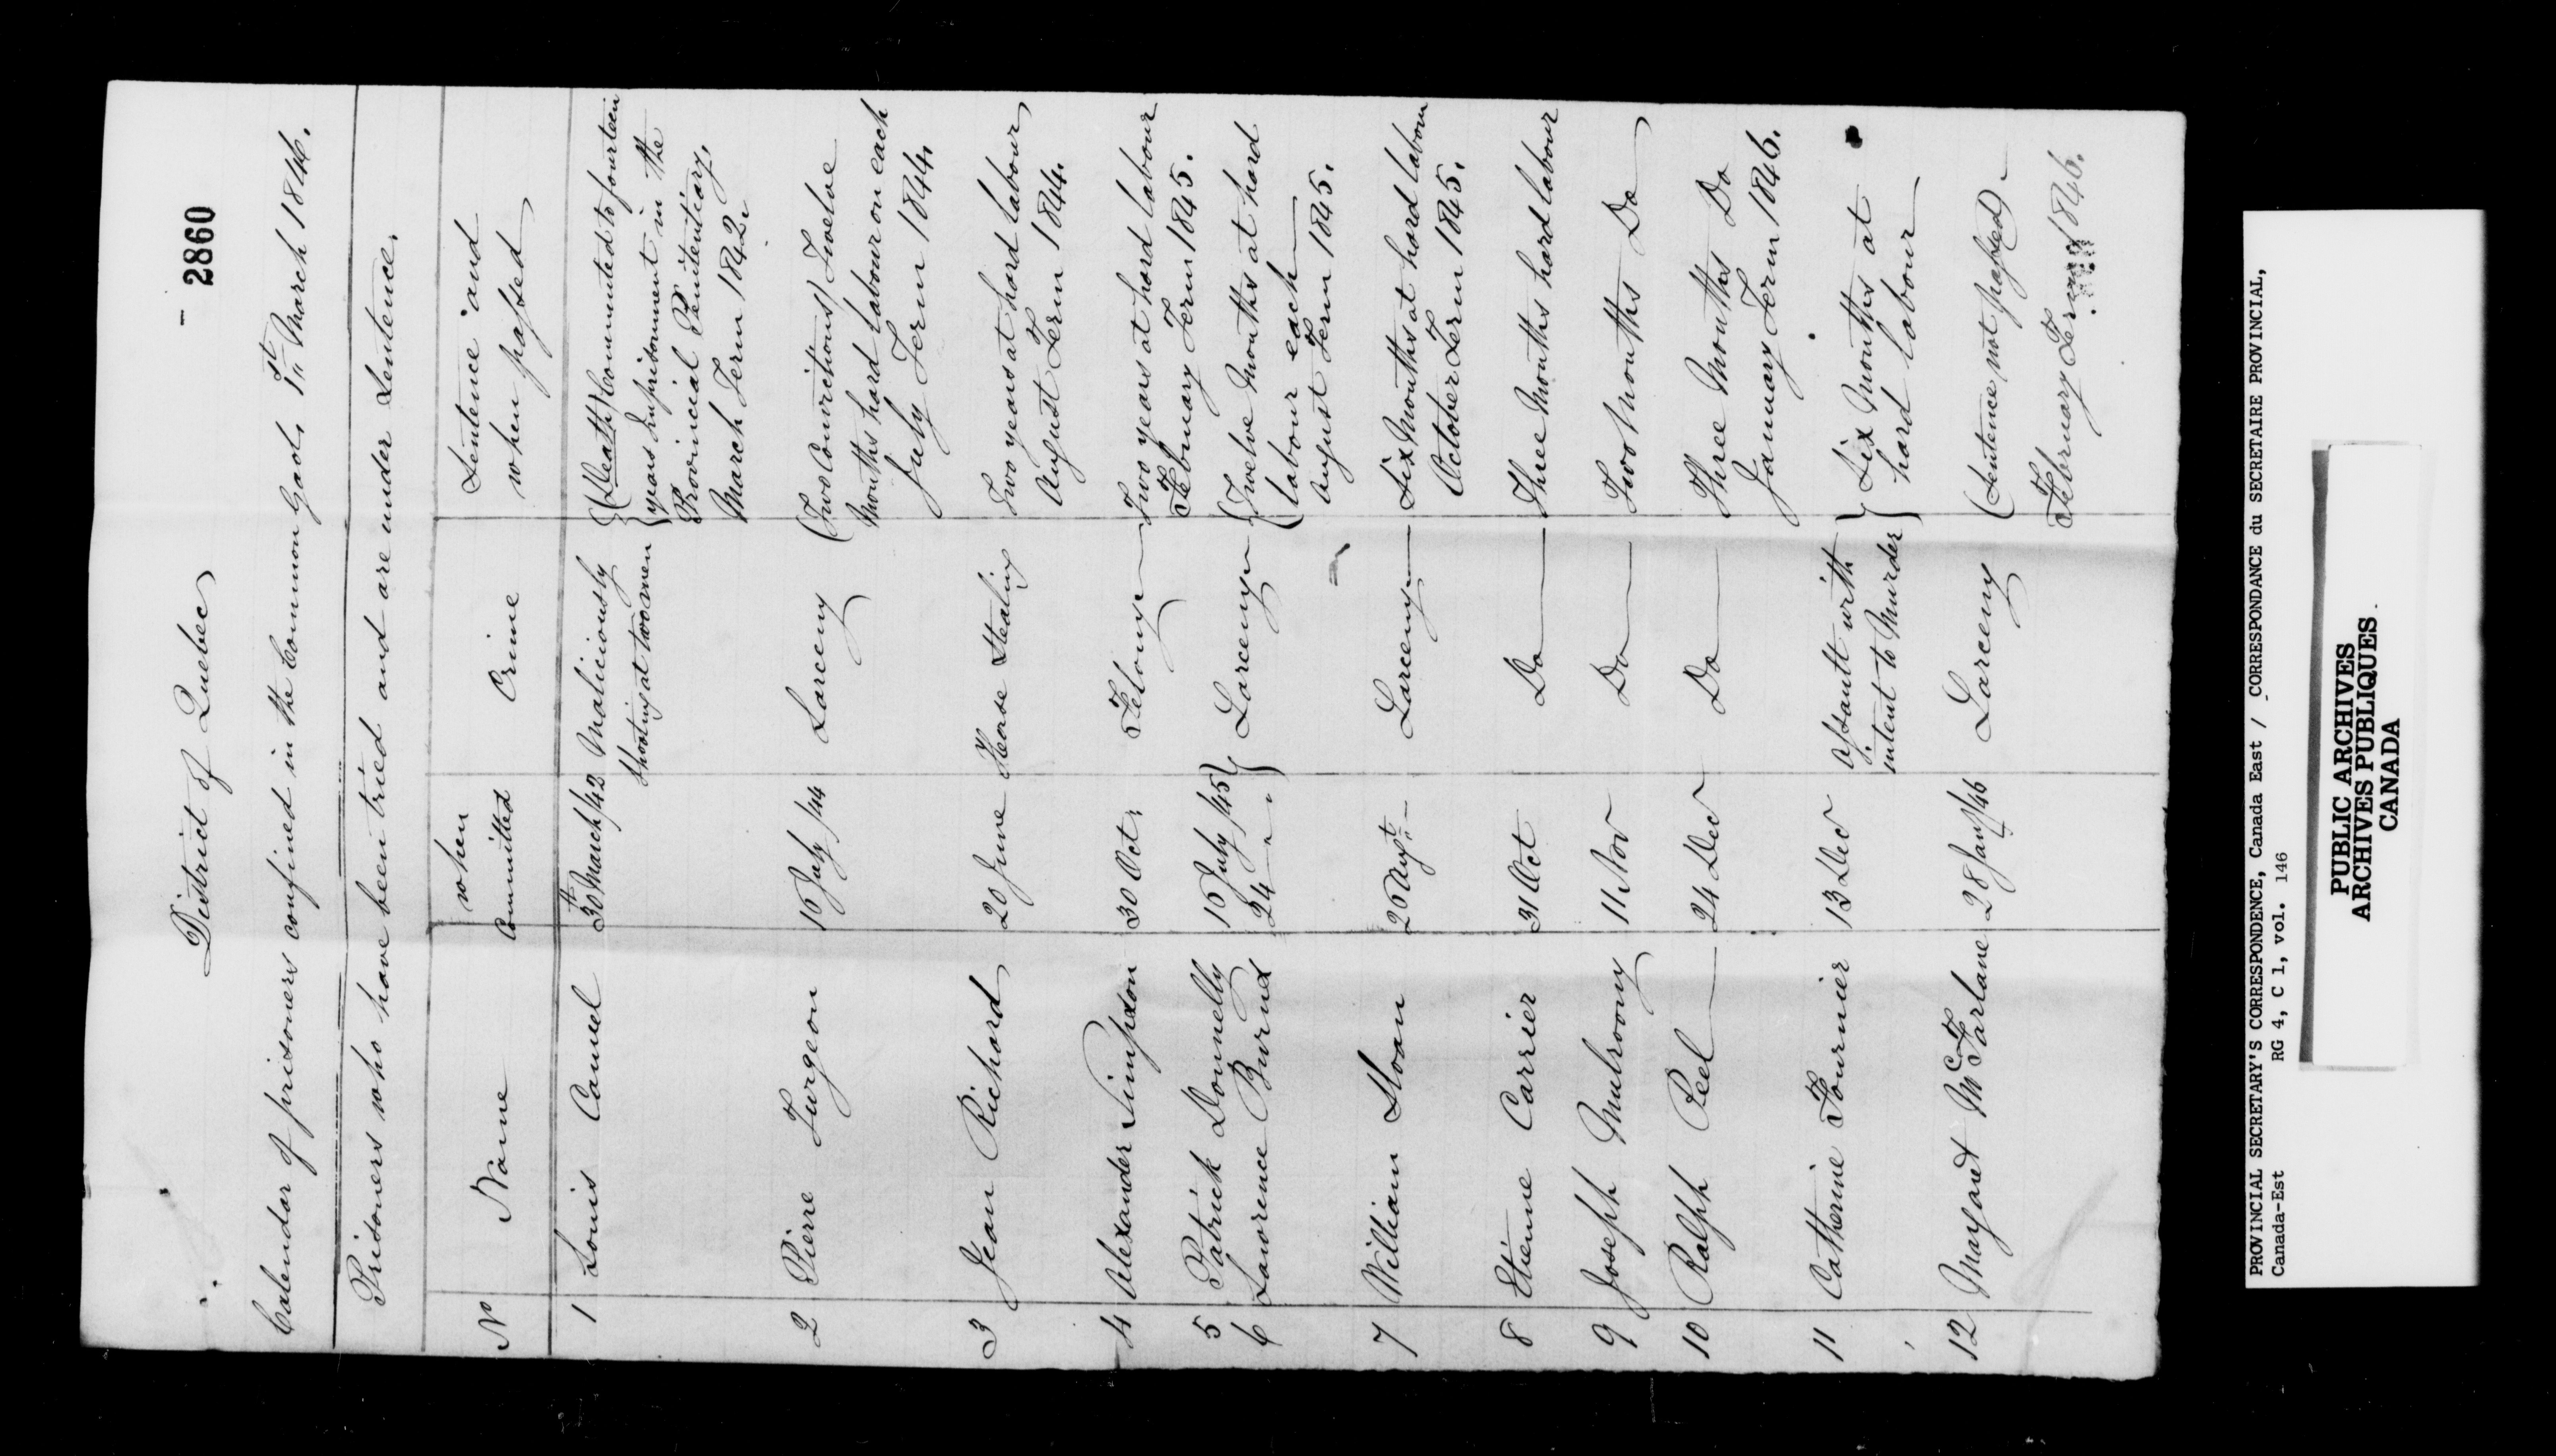 - 2860
District of Quebec
Calendar of prisoners confined in the Common Gaol, 1st March 1846.
Prisoners who have been tried and are under Sentence.
No Name when Committed Crime Sentence and when passed
1 Louis Camel 30th March/42 Maliciously shooting at two men (Death) Commuted to fourteen
years Imprisonment in the
Provincial Penitentiary.
March Term 1842.
2 Pierre Turgeon 16 July/44 Larceny (Two Convictions) Twelve
Months hard labour on each
July Term 1844.
3 Jean Richard 20 June Horse Stealing Two years at hard labour
August Term 1844.
4 Alexander Simpson 30 Oct. Felony Two years at hard labour
February Term 1845.
5 Patrick Donnelly 16 July/45 Larceny Twelve Months at hard
6 Lawrence Burns 24 " " labour each
August Term 1845.
7 William Sloan 26 Augt Larceny Six Months at hard labour
October Term 1845.
8 Etienne Carrier 31 Oct Do Three Months hard labour
9 Joseph Mulroony 11 Nov Do Two Months Do
10 Ralph Peel 24 Dec Do Three Months Do
January Term 1846.
11 Catherine Fournier 13 Dec Assault with Six Months at
intent to Murder hard labour
12 Margaret McFarlane 28 Jany/46 Larceny (Sentence not passed)
February Term 1846.
PROVINCIAL SECRETARY'S CORRESPONDENCE, Canada East / CORRESPONDANCE du SECRETAIRE PROVINCIAL,
Canada-Est RG 4, C 1, vol. 146
PUBLIC ARCHIVES
ARCHIVES PUBLIQUES
CANADA